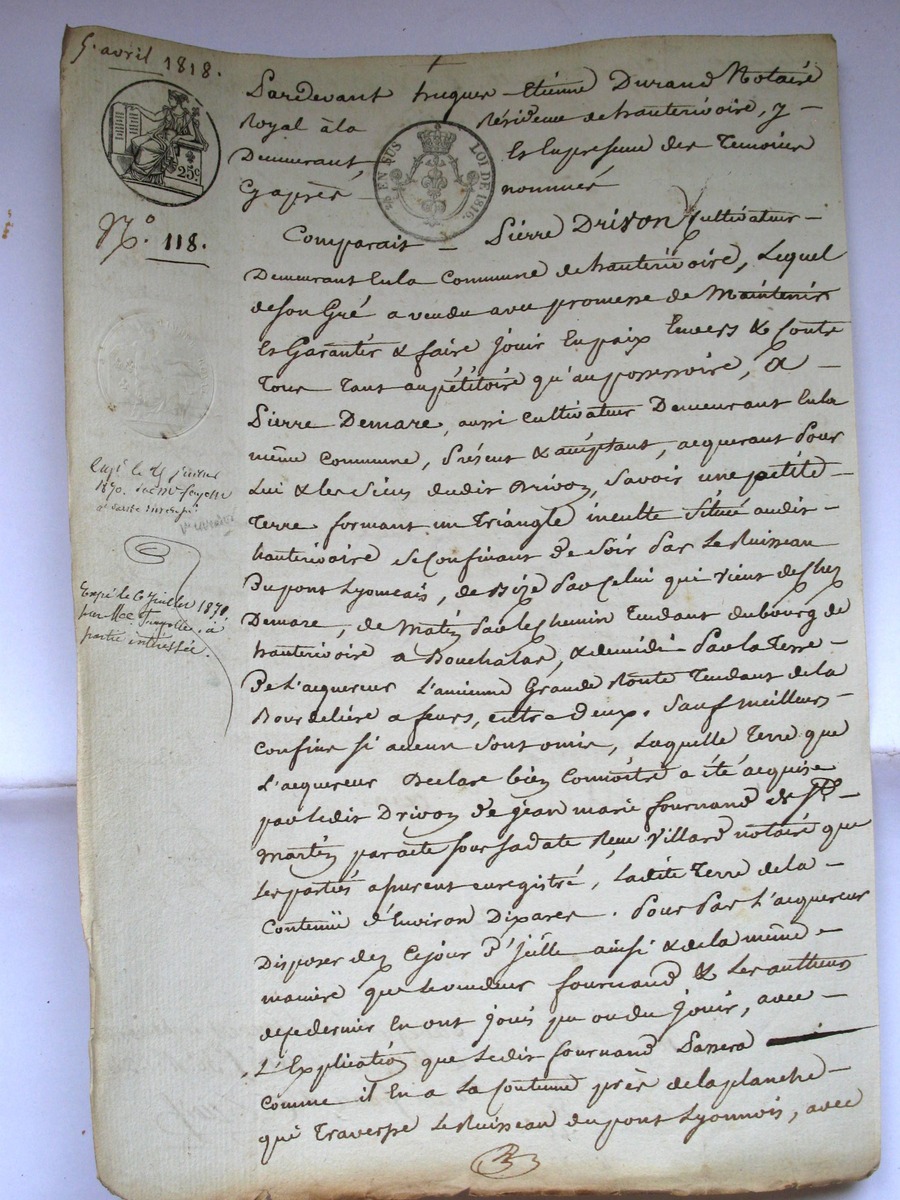 5. avril 1818.
25c.
EN SUS
LOI DE 1816.
N.o 118.
Pardevant hugues Etienne Durand Notaire
Royal à la Résidence de hauterivoire, y
Demeurant Et En présence des Temoins
Cyaprès nommés
Comparait Pierre DRIVON Cultivateur
Demeurant En la Commune de hauterivoire, Lequel
de son Gré a vendu avec promesse de Maintenir
Et Garantir & faire jouir En paix Envers & Contre
Tous Tant au pétitoire qu'au possessoire, A
Pierre DEMARE, aussi Cultivateur Demeurant En la
même Commune, Présent & acceptant, acquerant Pour
Lui & les Siens dudit Drivon, Savoir une petite
Terre formant un Triangle inculte Située audit
hauterivoire Se Confinant De Soir Par Le Ruisseau
Du pont Lyonnais, de Bize Par Celui qui vient de Chez
Demare, de Matin Par le Chemin Tendant du bourg de
hauterivoire a Bouchalas, & de midi Par la Terre
De L'acquereur L'ancienne Grande Route Tendant de la
Bourdelière a feurs, entre deux. Sauf meilleurs
Confins si aucun Sont omis, Laquelle Terre que
L'acquereur Déclare bien Connoître a été acquise
par Ledit Drivon De jean marie fournand de St
Martin par acte sous Sa date Reçu Villard notaire que
Les parties assurent enregistré, Ladite Terre de la
Contenüe d'Environ Dix ares. Pour Par L'acquereur
Disposer dez Cejour D'icelle ainsi & de la même
maniere que le vendeur fournand & Les autheurs
de ce dernier En ont joui pu ou du Jouir, avec
L'Explication que Ledit fournand Passera
Comme il En a La Coutume près de la planche
qui Traverse Le Ruisseau du pont Lyonnois, avec
Expé le 6 juillet 1870.
par Me Fayolle, à
partie intéressée.